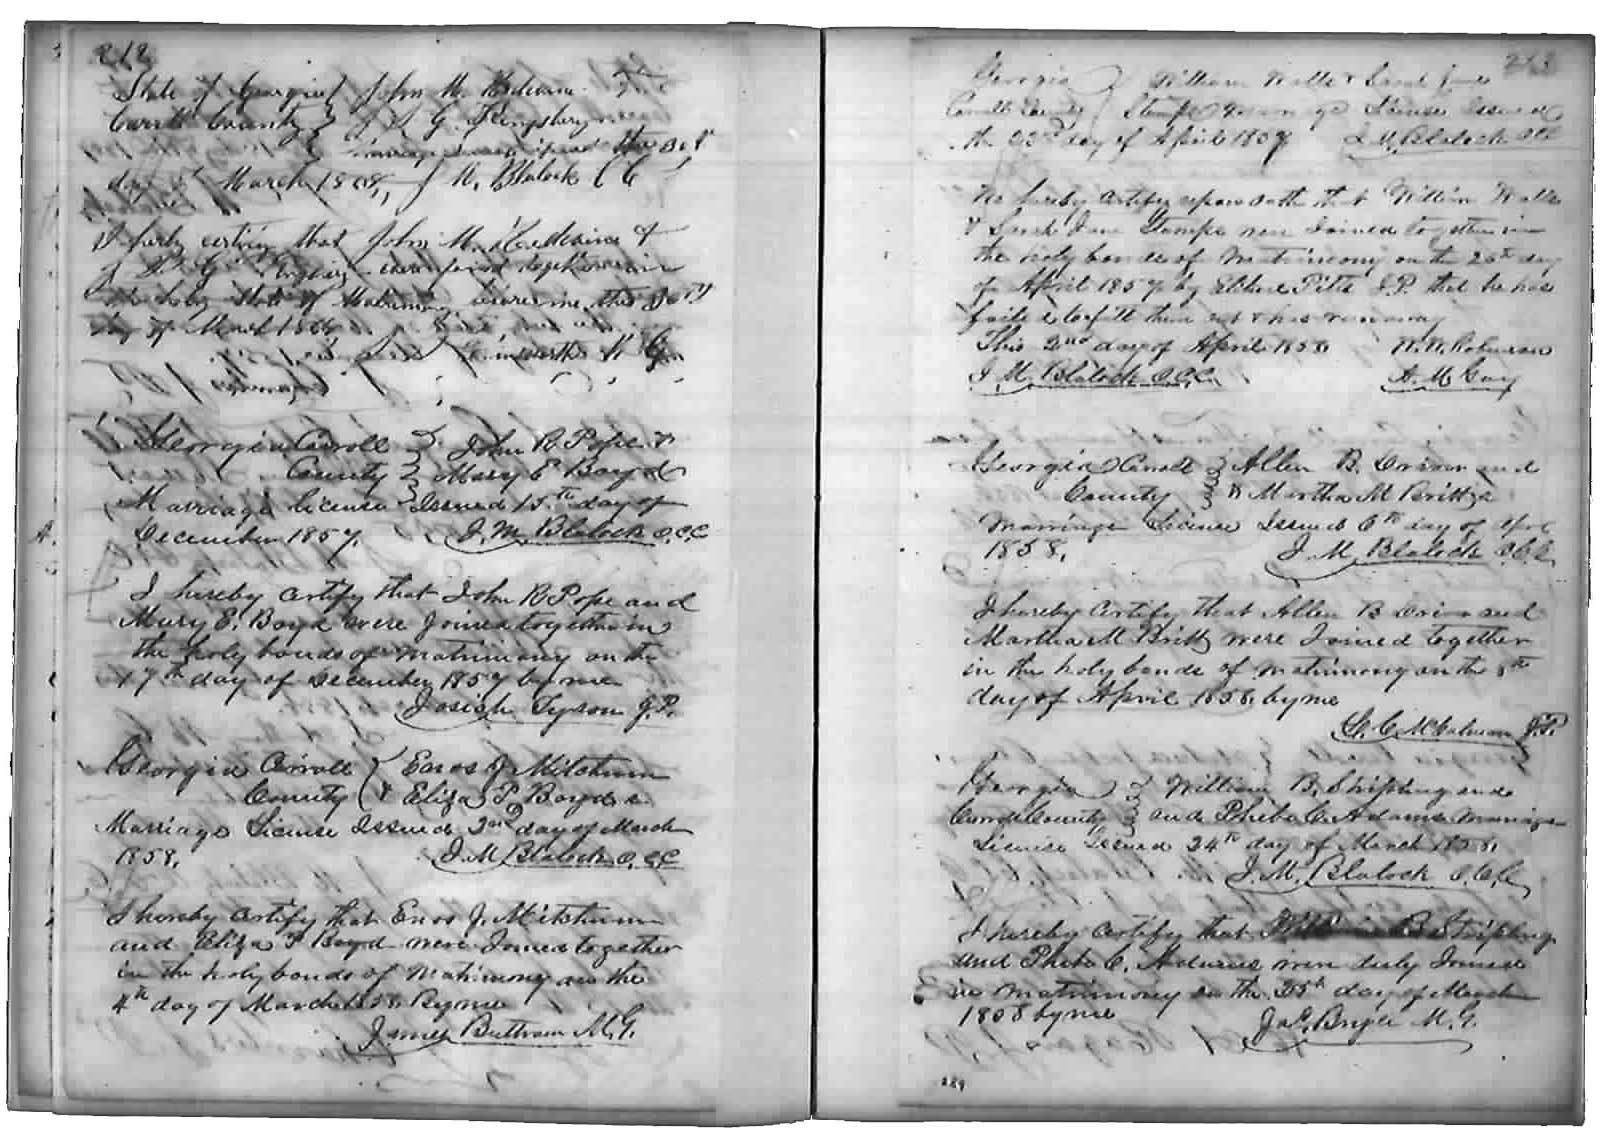 212
State of Georgia John M.
Carroll County G. Kingsbury
marriage
day of March 1858, J M. Blalock CCC
I herby certify that John M. &
G. together in
the holy State of before me this
day of March 1858
Georgia Carroll John R Pope &
County Mary E Boyd
Marriage License Issued 15th day of
December 1857. J. M. Blalock O.C.C
I hereby certify that John R Pope and
Mary E. Boyd were Joined together in
the holy bonds of matrimony on the
17th day of December 1857 by me
Josiah Tyson J.P.
Georgia Carroll Enos J Mitchum
County & Eliza P. Boyd
Marriage License Issued 3rd day of March
1858, J. M. Blalock O.C.C
I hereby certify that Enos J. Mitchum
and Eliza P Boyd were Joined together
in the holy bonds of matrimony on the
4th day of March 1858 By me
James Buttram M.G.
213
Georgia William Walls & Sarah Jane
Carroll County Stamps Marriage License Issued
the 22nd day of April 1857 J. M. Blalock CCC
We hereby certify upon oath that William Walls
& Sarah Jane Stamps were Joined together in
the holy bonds of Matrimony on the day
of April 1857 by Pitts J.P. that he has
failed to
This 2nd day of April 1858 W. W. Roberson
J M. Blalock O.C.C. A. M Gay
Georgia Carroll Allen B. and
County & Martha M Britt
Marriage License Issued 6th day of Apr
1858, J. M. Blalock O.C.C.
I hereby Certify that Allen B and
Martha M Britt were Joined together
in the holy bonds of matrimony on the 8th
day of April 1858 by me
G. C. McCalman J.P.
Georgia William B. Stripling and
Carroll County and Pheba C. Adams Marriage
License Issued 24th day of March 1858
J. M. Blalock O.C.C,
I hereby certify that William B Stripling
and Pheba C. Adams were duly Joined
in matrimony on the 25th day of March
1858 by me Jas. M.G.
289